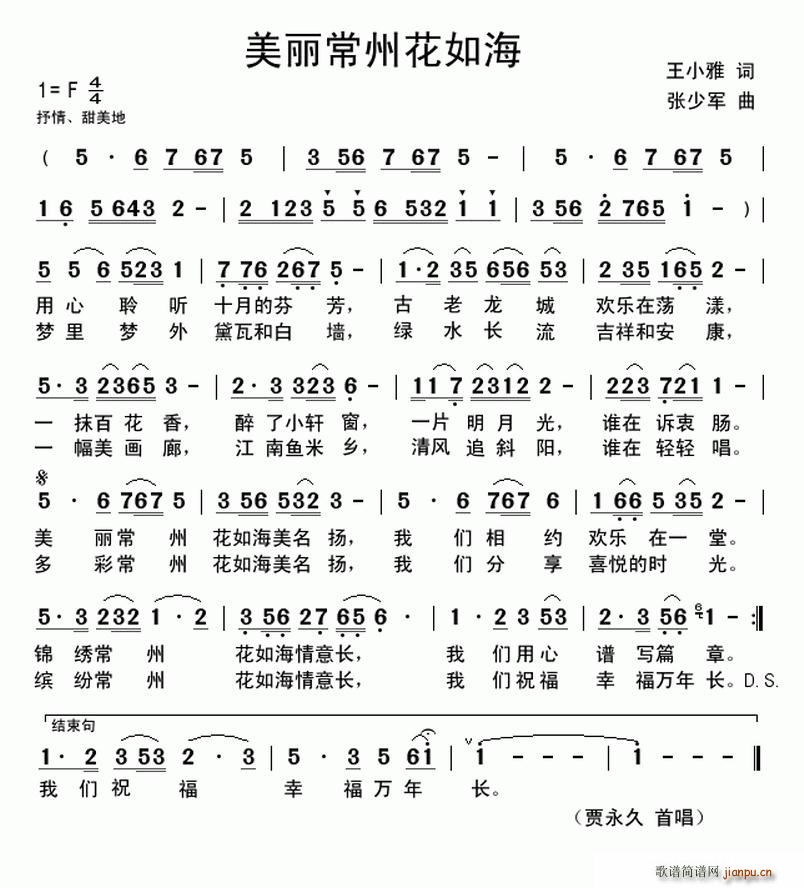 美丽常州花如海
1= F 4/4
王小雅 词
抒情、甜美地
张少军 曲
( 5 · 6 7 67 5 | 3 56 7 67 5 - | 5 · 6 7 67 5 |
1 6 5 643 2 - | 2 123 5 5 6 532 1 1 | 3 56 2 765 i - ) |
5 5 6 523 1 | 7 76 267 5 - | 1·2 35 656 53 | 2 35 165 2 - |
用 心 聆 听 十月的芬 芳， 古 老 龙 城 欢乐在荡 漾，
梦 里 梦 外 黛瓦和白 墙， 绿 水 长 流 吉祥和安 康，
5· 3 2365 3 - | 2· 3 323 6 - | 11 7 2312 2 - | 223 721 1 - |
一 抹百 花 香， 醉 了小轩 窗， 一片 明 月 光， 谁在 诉衷 肠。
一 幅美 画 廊， 江 南鱼米 乡， 清风 追 斜 阳， 谁在 轻轻 唱。
5 · 6 767 5 | 3 56 532 3 - | 5 · 6 767 6 | 1 66 5 35 2 - |
美 丽常 州 花如海美名 扬， 我 们 相 约 欢乐 在一 堂。
多 彩常 州 花如海美名 扬， 我 们 分 享 喜悦的时 光。
5· 3 232 1·2 | 3 56 27 65 6 · | 1· 2 3 53 | 2· 3 56 6 1 - :||
锦 绣常 州 花如海情意长， 我 们用心 谱 写篇 章。
缤 纷常 州 花如海情意长， 我 们祝福 幸 福万年 长。D.S.
结束句
1· 2 3 53 2 · 3 | 5 · 3 5 6i | i - - - | i - - - ||
我 们 祝 福 幸 福 万 年 长。
（贾永久 首唱）
歌谱简谱网 jianpu.cn